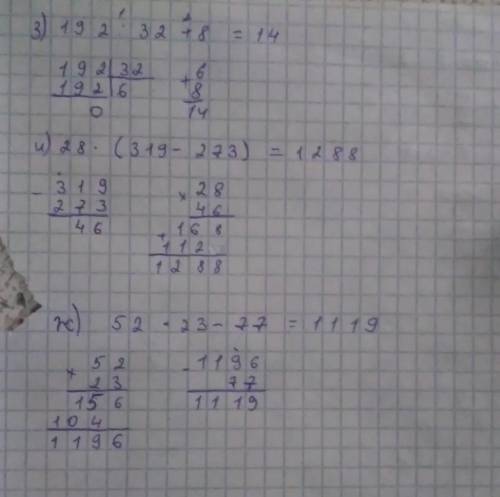 з) 192 : 32 + 8 = 14
1 2
192 | 32
192 | 6
0
+ 6
8
14
и) 28 · (319 - 273) = 1288
- 319
273
46
× 28
46
+ 168
112
1288
ж) 52 · 23 - 77 = 1119
× 52
23
156
104
1196
- 1196
77
1119